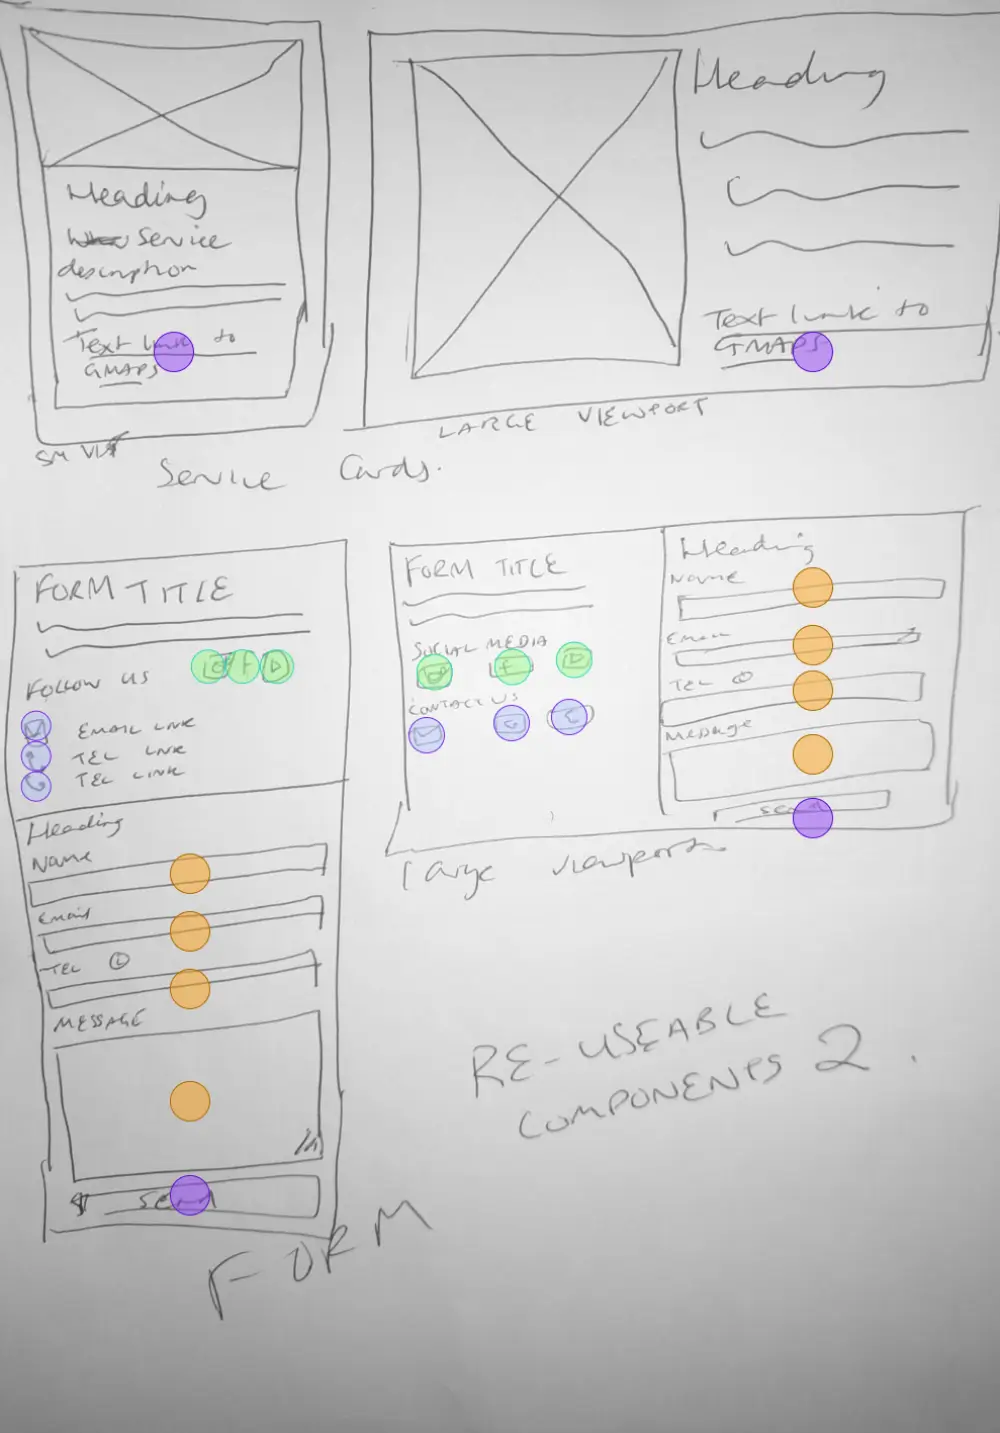 Heading
Service
description
Text link to
GMAPS
SM VP
Heading
Text link to
GMAPS
LARGE VIEWPORT
Service Cards.
FORM TITLE
FOLLOW US
EMAIL LINK
TEL LINK
TEL LINK
Heading
Name
Email
TEL
MESSAGE
SEND
FORM
FORM TITLE
SOCIAL MEDIA
CONTACT US
Heading
Name
Email
TEL
MESSAGE
SEND
large viewport
RE-USEABLE
COMPONENTS 2.